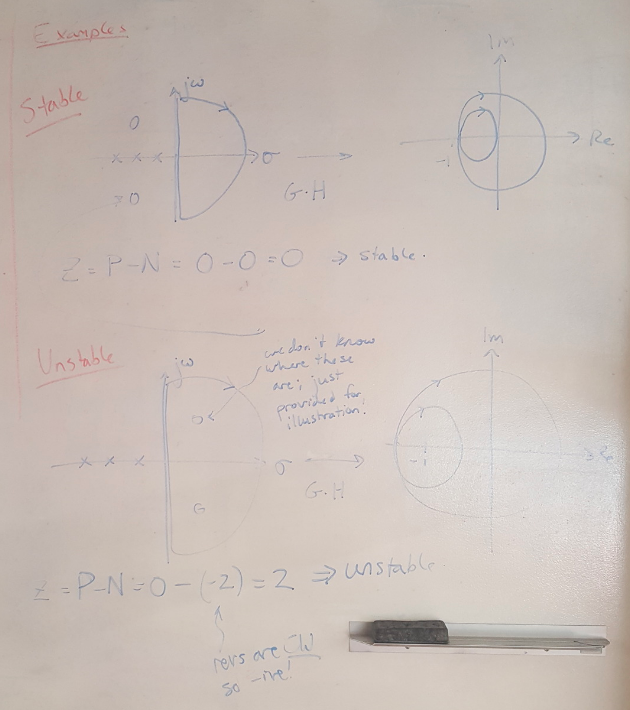 Examples
Stable
jω
Im
Re
-1
σ
G.H
Z = P-N = 0-0 = 0 ⇒ stable.
Unstable
jω
we don't know
where these
are; just
provided for
illustration!
Im
Re
-1
σ
G.H
Z = P-N = 0 - (-2) = 2 ⇒ unstable.
revs are CW
so -ive!